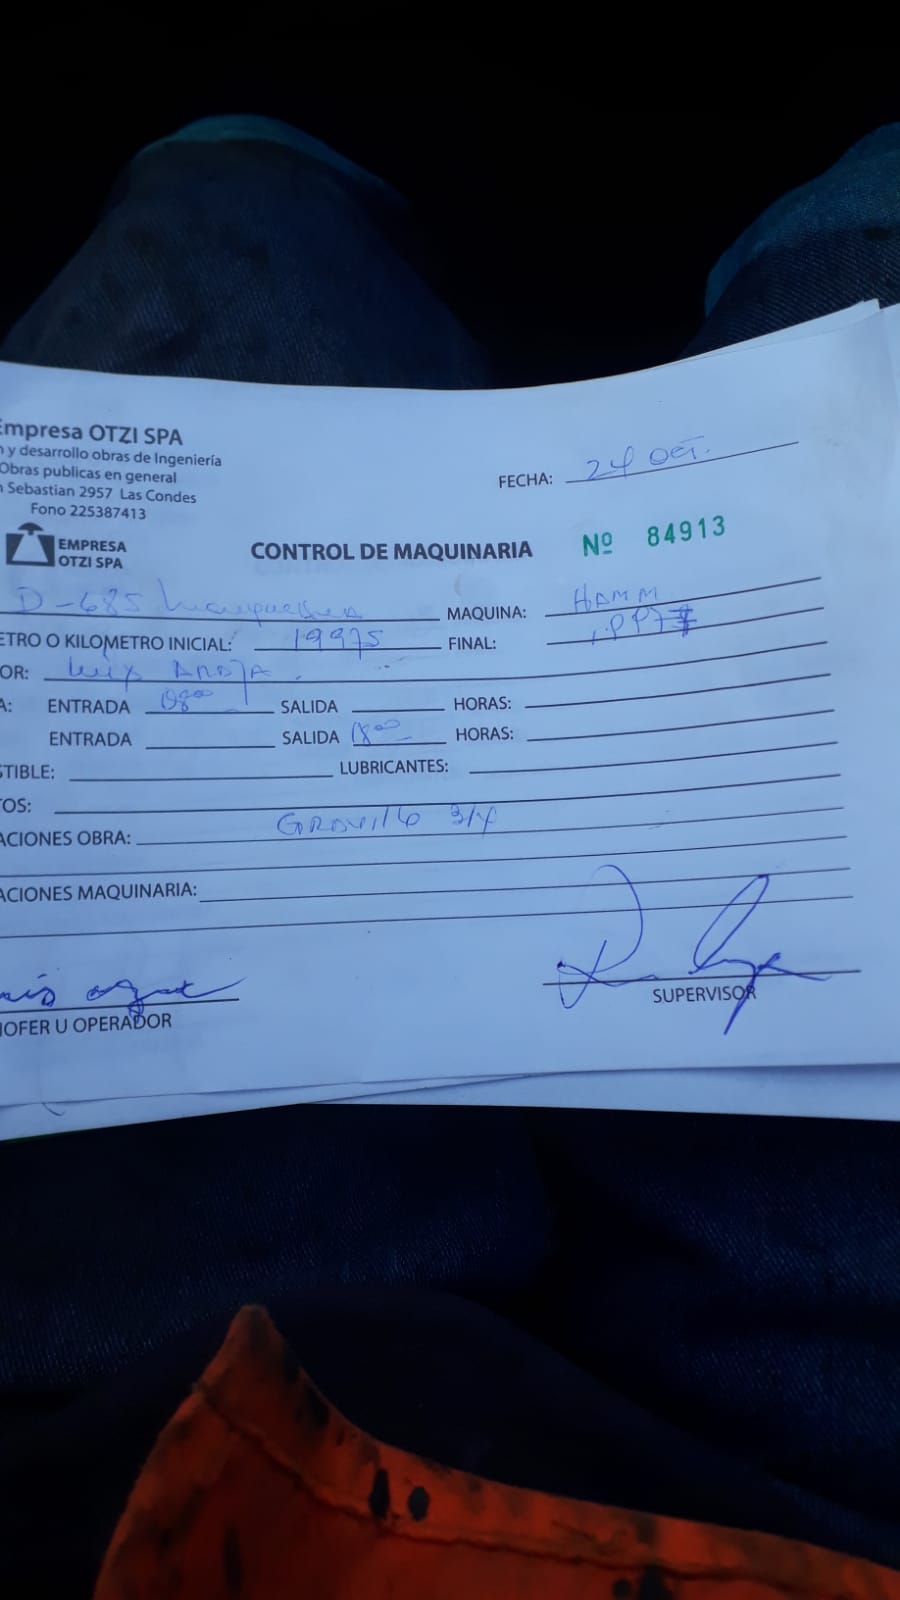 Empresa OTZI SPA
n y desarrollo obras de Ingeniería
Obras publicas en general
n Sebastian 2957 Las Condes
Fono 225387413
FECHA: 24 OCT.
EMPRESA
OTZI SPA
CONTROL DE MAQUINARIA Nº 84913
D-685 MAQUINA: HAMM
ETRO O KILOMETRO INICIAL: 19975 FINAL:
OR: Luis
A: ENTRADA 0800 SALIDA HORAS:
ENTRADA SALIDA 1800 HORAS:
STIBLE: LUBRICANTES:
TOS:
ACIONES OBRA: Gravilla 3/4
ACIONES MAQUINARIA:
HOFER U OPERADOR
SUPERVISOR